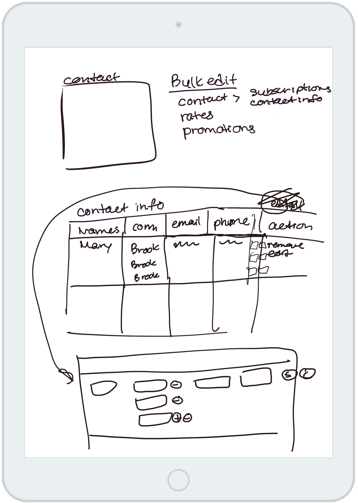 contact
Bulk edit
contact > subscriptions
contact info
rates
promotions
contact info
Names com email phone action
Mary Brook remove
Brook edit
Brook
- 
-
+ -
S C